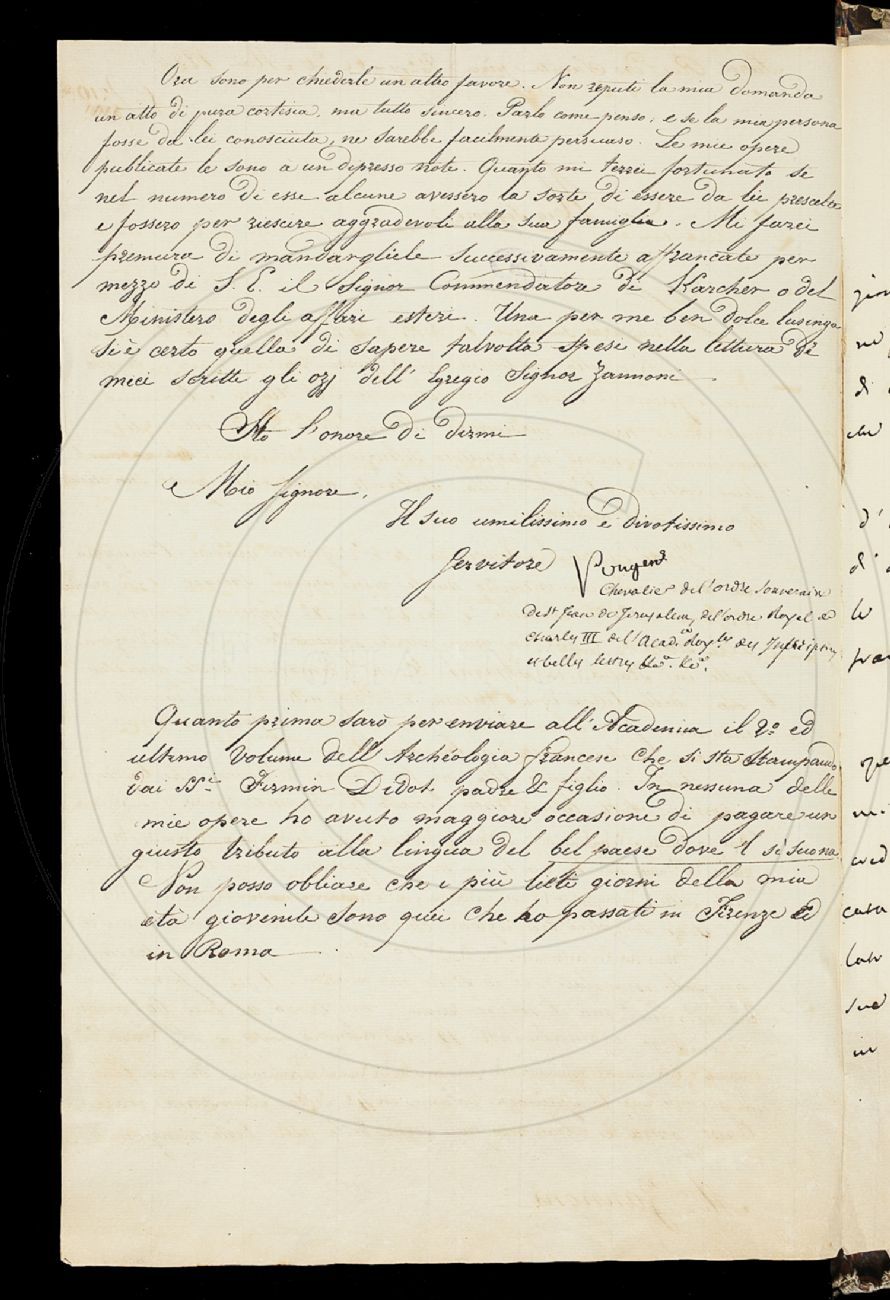 Ora sono per chiederle un altro favore. Non reputi la mia domanda
un atto di pura cortisia, ma tutto sincero. Parlo come penso, e se la mia persona
fosse da lei conosciuta, ne sarebbe facilmente persuaso. Le mie opere
publicate le sono a un dipresso note. Quanto mi terrei fortunato se
nel numero di esse alcune avessero la sorte di essere da lei prescelte
e fossero per riescire aggradevoli alla sua famiglia. Mi farei
premura di mandargliele successivamente affrancate per
mezzo di S. E. il Signor Commendatore de Karcher o del
Ministero degli affari esteri. Una per me ben dolce lusinga
si è certo quella di sapere talvolta spesi nella lettura de
miei scritti gli ozj dell' Egregio Signor Zannoni
Ho l'onore di dirmi
Mio Signore,
Il suo umilissimo e divotissimo
Servitore Pougens
Chevalier de l'ordre Souverain
de St Jean de Jerusalem, de l'ordre Royal de
Charles III de l'Acad. Roy. des Inscriptions
et belles lettres &a. &a.
Quanto prima sarò per enviare all'Academia il 2o ed
ultimo volume dell' Archéologia francese che si sta stampando
dai SSi. Firmin Didot padre & figlio. In nessuna delle
mie opere ho avuto maggiore occasione di pagare un
giusto tributo alla lingua del bel paese dove 'l sì suona.
Non posso obliare che i più lieti giorni della mia
età giovenile sono quei che ho passati in Firenze ed
in Roma